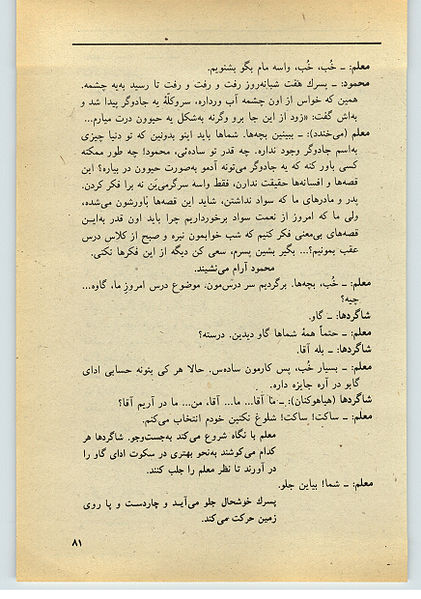 معلم: ـ خُب، خُب، واسه مام بگو بشنویم.
محمود: ـ پسرك هفت شبانه‌روز رفت و رفت و رفت تا رسید به‌یه چشمه.
همین که خواس از اون چشمه آب ورداره، سروکلّهٔ یه جادوگر پیدا شد و
به‌اش گفت: «زود از این جا برو وگرنه به‌شکل یه حیوون درت میارم...
معلم (می‌خندد): ـ ببینین بچه‌ها. شماها باید اینو بدونین که تو دنیا چیزی
به‌اسم جادوگر وجود نداره. چه قدر تو ساده‌ئی، محمود! چه طور ممکنه
کسی باور کنه که یه جادوگر می‌تونه آدمو به‌صورت حیوون در بیاره؟ این
قصه‌ها و افسانه‌ها حقیقت ندارن، فقط واسه سرگرمی‌ین نه برا فکر کردن.
پدر و مادرهای ما که سواد نداشتن، شاید این قصه‌ها باورشون می‌شده،
ولی ما که امروز از نعمت سواد برخورداریم چرا باید اون قدر به‌این
قصه‌های بی‌معنی فکر کنیم که شب خوابمون نبره و صبح از کلاس درس
عقب بمونیم؟... بگیر بشین پسرم، سعی کن دیگه از این فکرها نکنی.
محمود آرام می‌نشیند.
معلم: ـ خُب، بچه‌ها. برگردیم سر درس‌مون. موضوع درس امروز ما، گاوه...
چیه؟
شاگردها: ـ گاو.
معلم: ـ حتماً همهٔ شماها گاو دیدین. درسته؟
شاگردها: ـ بله آقا.
معلم: ـ بسیار خُب، پس کارمون ساده‌س. حالا هر کی بتونه حسابی ادای
گابو در آره جایزه داره.
شاگردها (هیاهوکنان): ـ ما آقا... ما... آقا، من... ما در آریم آقا؟
معلم: ـ ساکت! ساکت! شلوغ نکنین خودم انتخاب می‌کنم.
معلم با نگاه شروع می‌کند به‌جست‌وجو. شاگردها هر
کدام می‌کوشند به‌نحو بهتری در سکوت ادای گاو را
در آورند تا نظر معلم را جلب کنند.
معلم: ـ شما! بیاین جلو.
پسرك خوشحال جلو می‌آیـد و چاردست و پا روی
زمین حرکت می‌کند.
۸۱